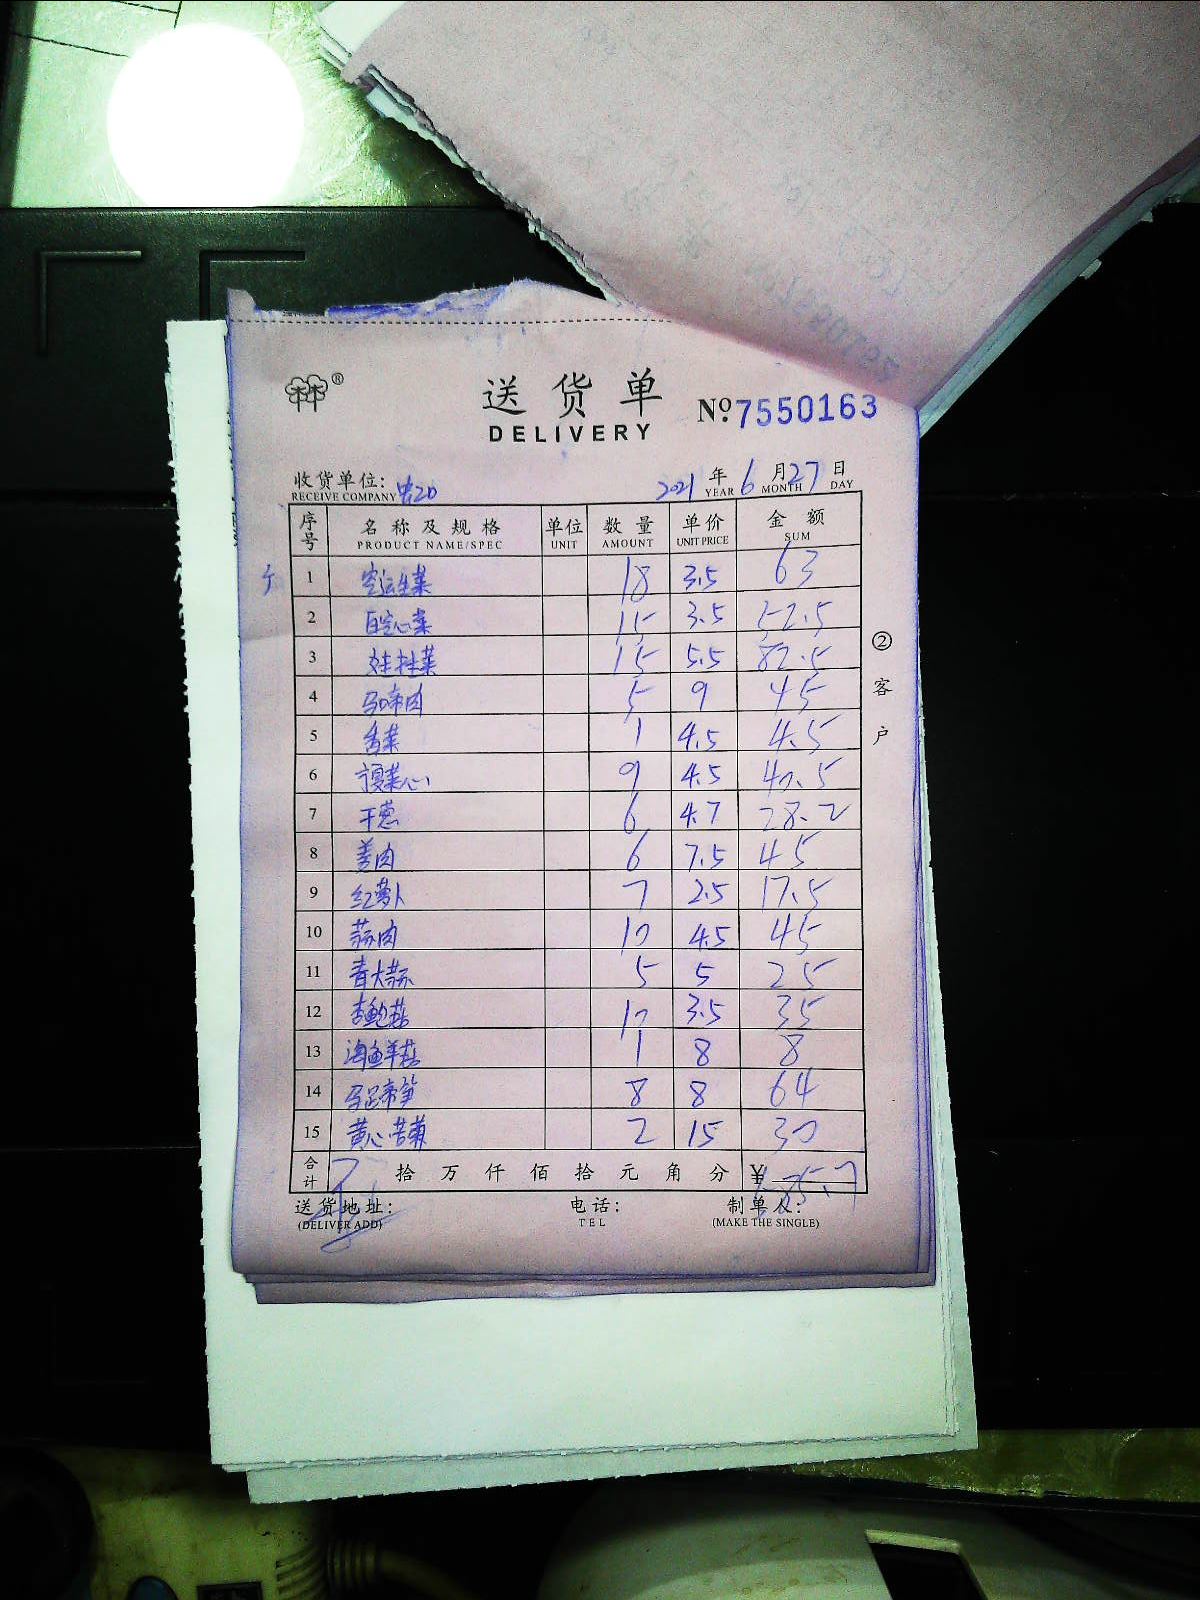 ®
送货单 №7550163
DELIVERY
收货单位: 2021 年 6 月 27 日
RECEIVE COMPANY YEAR MONTH DAY
序号 名称及规格 单位 数量 单价 金额
PRODUCT NAME/SPEC UNIT AMOUNT UNIT PRICE SUM
1 空运生菜 18 3.5 63
2 白空心菜 15 3.5 52.5
3 娃娃菜 15 5.5 82.5
4 马蹄肉 5 9 45
5 香菜 1 4.5 4.5
6 菜心 9 4.5 40.5
7 干葱 6 4.7 28.2
8 姜肉 6 7.5 45
9 红萝卜 7 2.5 17.5
10 蒜肉 10 4.5 45
11 青大蒜 5 5 25
12 杏鲍菇 10 3.5 35
13 海鲜菇 1 8 8
14 马蹄笋 8 8 64
15 黄心苦菊 2 15 30
合计 拾 万 仟 佰 拾 元 角 分 ¥ 585.7
送货地址: 电话: 制单人:
(DELIVER ADD) TEL (MAKE THE SINGLE)
②客户